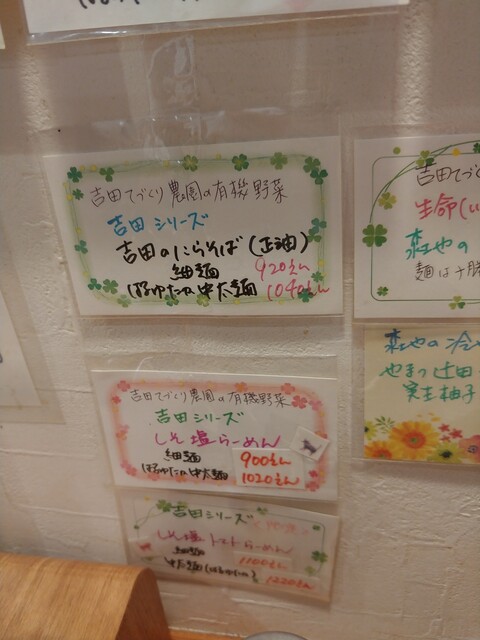 吉田てづくり農園の有機野菜
吉田シリーズ
吉田のにらそば(正油)
細麺 920えん
はるゆたか中太麺 1040えん
吉田てづくり農園の有機野菜
吉田シリーズ
しそ塩らーめん
細麺 900えん
はるゆたか中太麺 1020えん
吉田シリーズ
しそ塩トマトらーめん
細麺 1100えん
中太麺(はるゆたか) 1220えん
吉田てづ
生命
森也の
麺は十勝
森也の冷
やまつ辻田
実生柚子